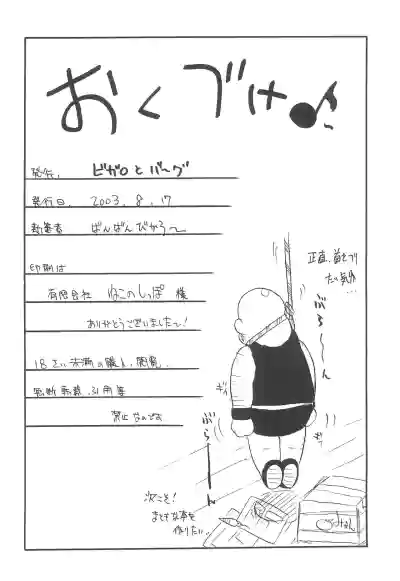 おくづけ♪
発行. ビガロとバーグ
発行日. 2003. 8. 17
執筆者 ばんばんびがろ〜
印刷は
有限会社 ねこのしっぽ 様
ありがとうございました〜!
18さい未満の購入、閲覧、
無断転載、引用等
禁止なのでお
正直、首をつり
たい気分...
ぶら〜〜ん
ギィ
ギィ
ぶら〜〜ん
次こそ!
まともな本を
作りたい..